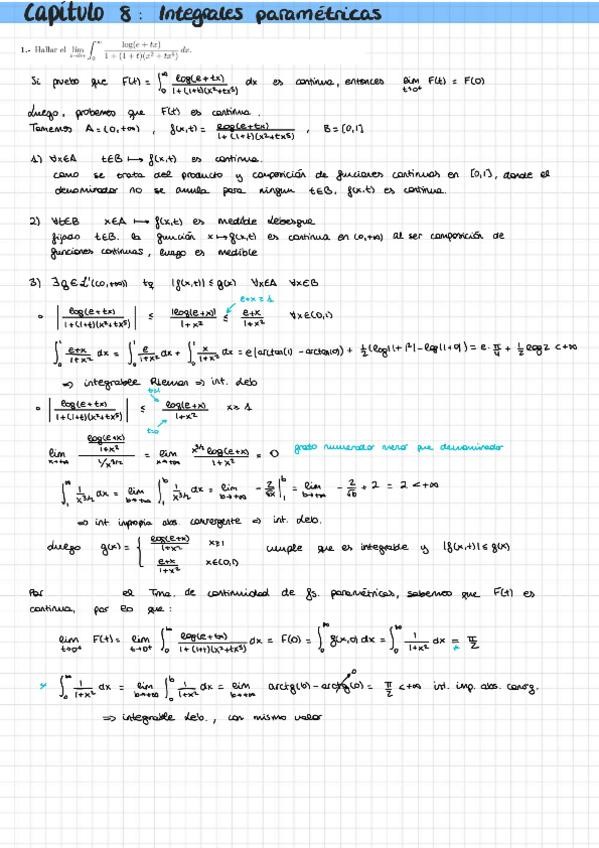 Capítulo 8: Integrales paramétricas
1.- Hallar el lim ∫₀^∞ log(e + tx) / (1 + (1 + t)(x² + tx⁵)) dx.
Si pruebo que F(t) = ∫₀^∞ log(e+tx) / (1+(1+t)(x²+tx⁵)) dx es continua, entonces lim t→0⁺ F(t) = F(0)
Luego, probemos que F(t) es continua.
Tenemos A = (0,+∞) , f(x,t) = log(e+tx) / (1+(1+t)(x²+tx⁵)) , B = [0,1]
1) ∀x∈A t∈B ⟼ f(x,t) es continua.
como se trata del producto y composición de funciones continuas en [0,1], donde el
denominador no se anula para ningun t∈B, f(x,t) es continua.
2) ∀t∈B x∈A ⟼ f(x,t) es medible Lebesgue
fijado t∈B. la función x⟼f(x,t) es continua en (0,+∞) al ser composición de
funciones continuas, luego es medible
3) ∃g∈L¹((0,+∞)) tq |f(x,t)| ≤ g(x) ∀x∈A ∀x∈B
e+x ≥ 1
∘ |log(e+tx) / (1+(1+t)(x²+tx⁵))| ≤ |log(e+x)| / (1+x²) ≤ (e+x) / (1+x²) ∀x∈(0,1)
∫₀¹ (e+x)/(1+x²) dx = ∫₀¹ e/(1+x²) dx + ∫₀¹ x/(1+x²) dx = e(arctan(1) - arctan(0)) + ½(log|1+1²| - log|1+0|) = e·π/4 + ½ log2 < +∞
⇒ integrable Rieman ⇒ int. Leb
t≤1
∘ |log(e+tx) / (1+(1+t)(x²+tx⁵))| ≤ log(e+x) / (1+x²) x ≥ 1
t≥0
lim x→+∞ (log(e+x)/(1+x²)) / (1/x^3/2) = lim x→+∞ x^3/2 log(e+x) / (1+x²) = 0 grado numerador menor que denominador
∫₁^∞ 1/x^3/2 dx = lim b→+∞ ∫₁^b 1/x^3/2 dx = lim b→+∞ - 2/√x |₁^b = lim b→+∞ - 2/√b + 2 = 2 < +∞
⇒ int impropia abs. convergente ⇒ int. Leb.
Luego g(x) = { log(e+x)/(1+x²) x≥1 cumple que es integrable y |f(x,t)| ≤ g(x)
(e+x)/(1+x²) x∈(0,1)
Por el Tma. de continuidad de fs. paramétricas, sabemos que F(t) es
continua, por lo que:
lim t→0⁺ F(t) = lim t→0⁺ ∫₀^∞ log(e+tx) / (1+(1+t)(x²+tx⁵)) dx = F(0) = ∫₀^∞ f(x,0) dx = ∫₀^∞ 1/(1+x²) dx =* π/2
* ∫₀^∞ 1/(1+x²) dx = lim b→+∞ ∫₀^b 1/(1+x²) dx = lim b→+∞ arctg(b) - arctg(0) = π/2 < +∞ int. imp. abs. converg.
⇒ integrable Leb., con mismo valor